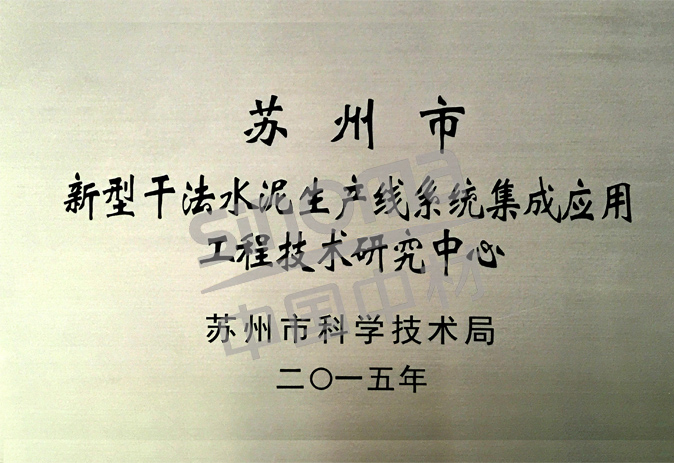 苏州市
新型干法水泥生产线系统集成应用
工程技术研究中心
苏州市科学技术局
二〇一五年
sinoma
中国中材